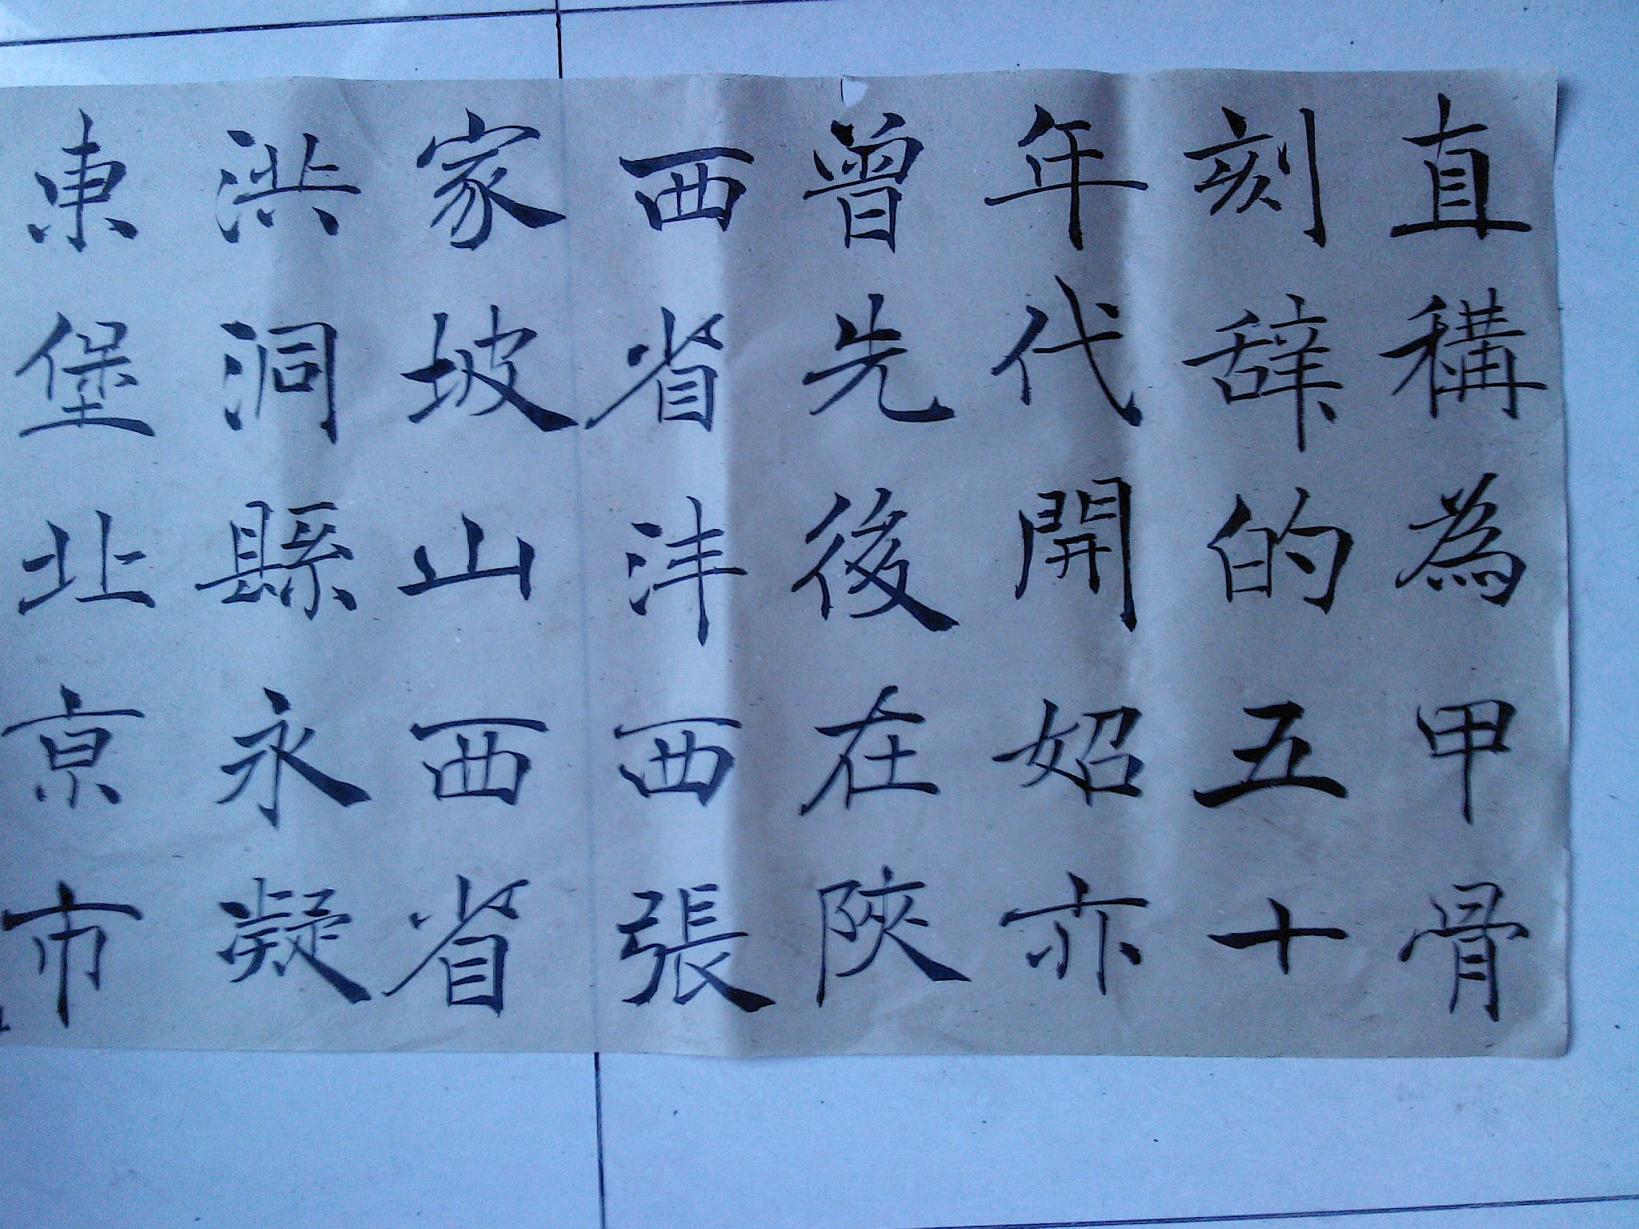 直稱為甲骨
刻辞的五十
年代開始亦
曾先後在陝
西省沣西張
家坡山西省
洪洞縣永凝
東堡北京市